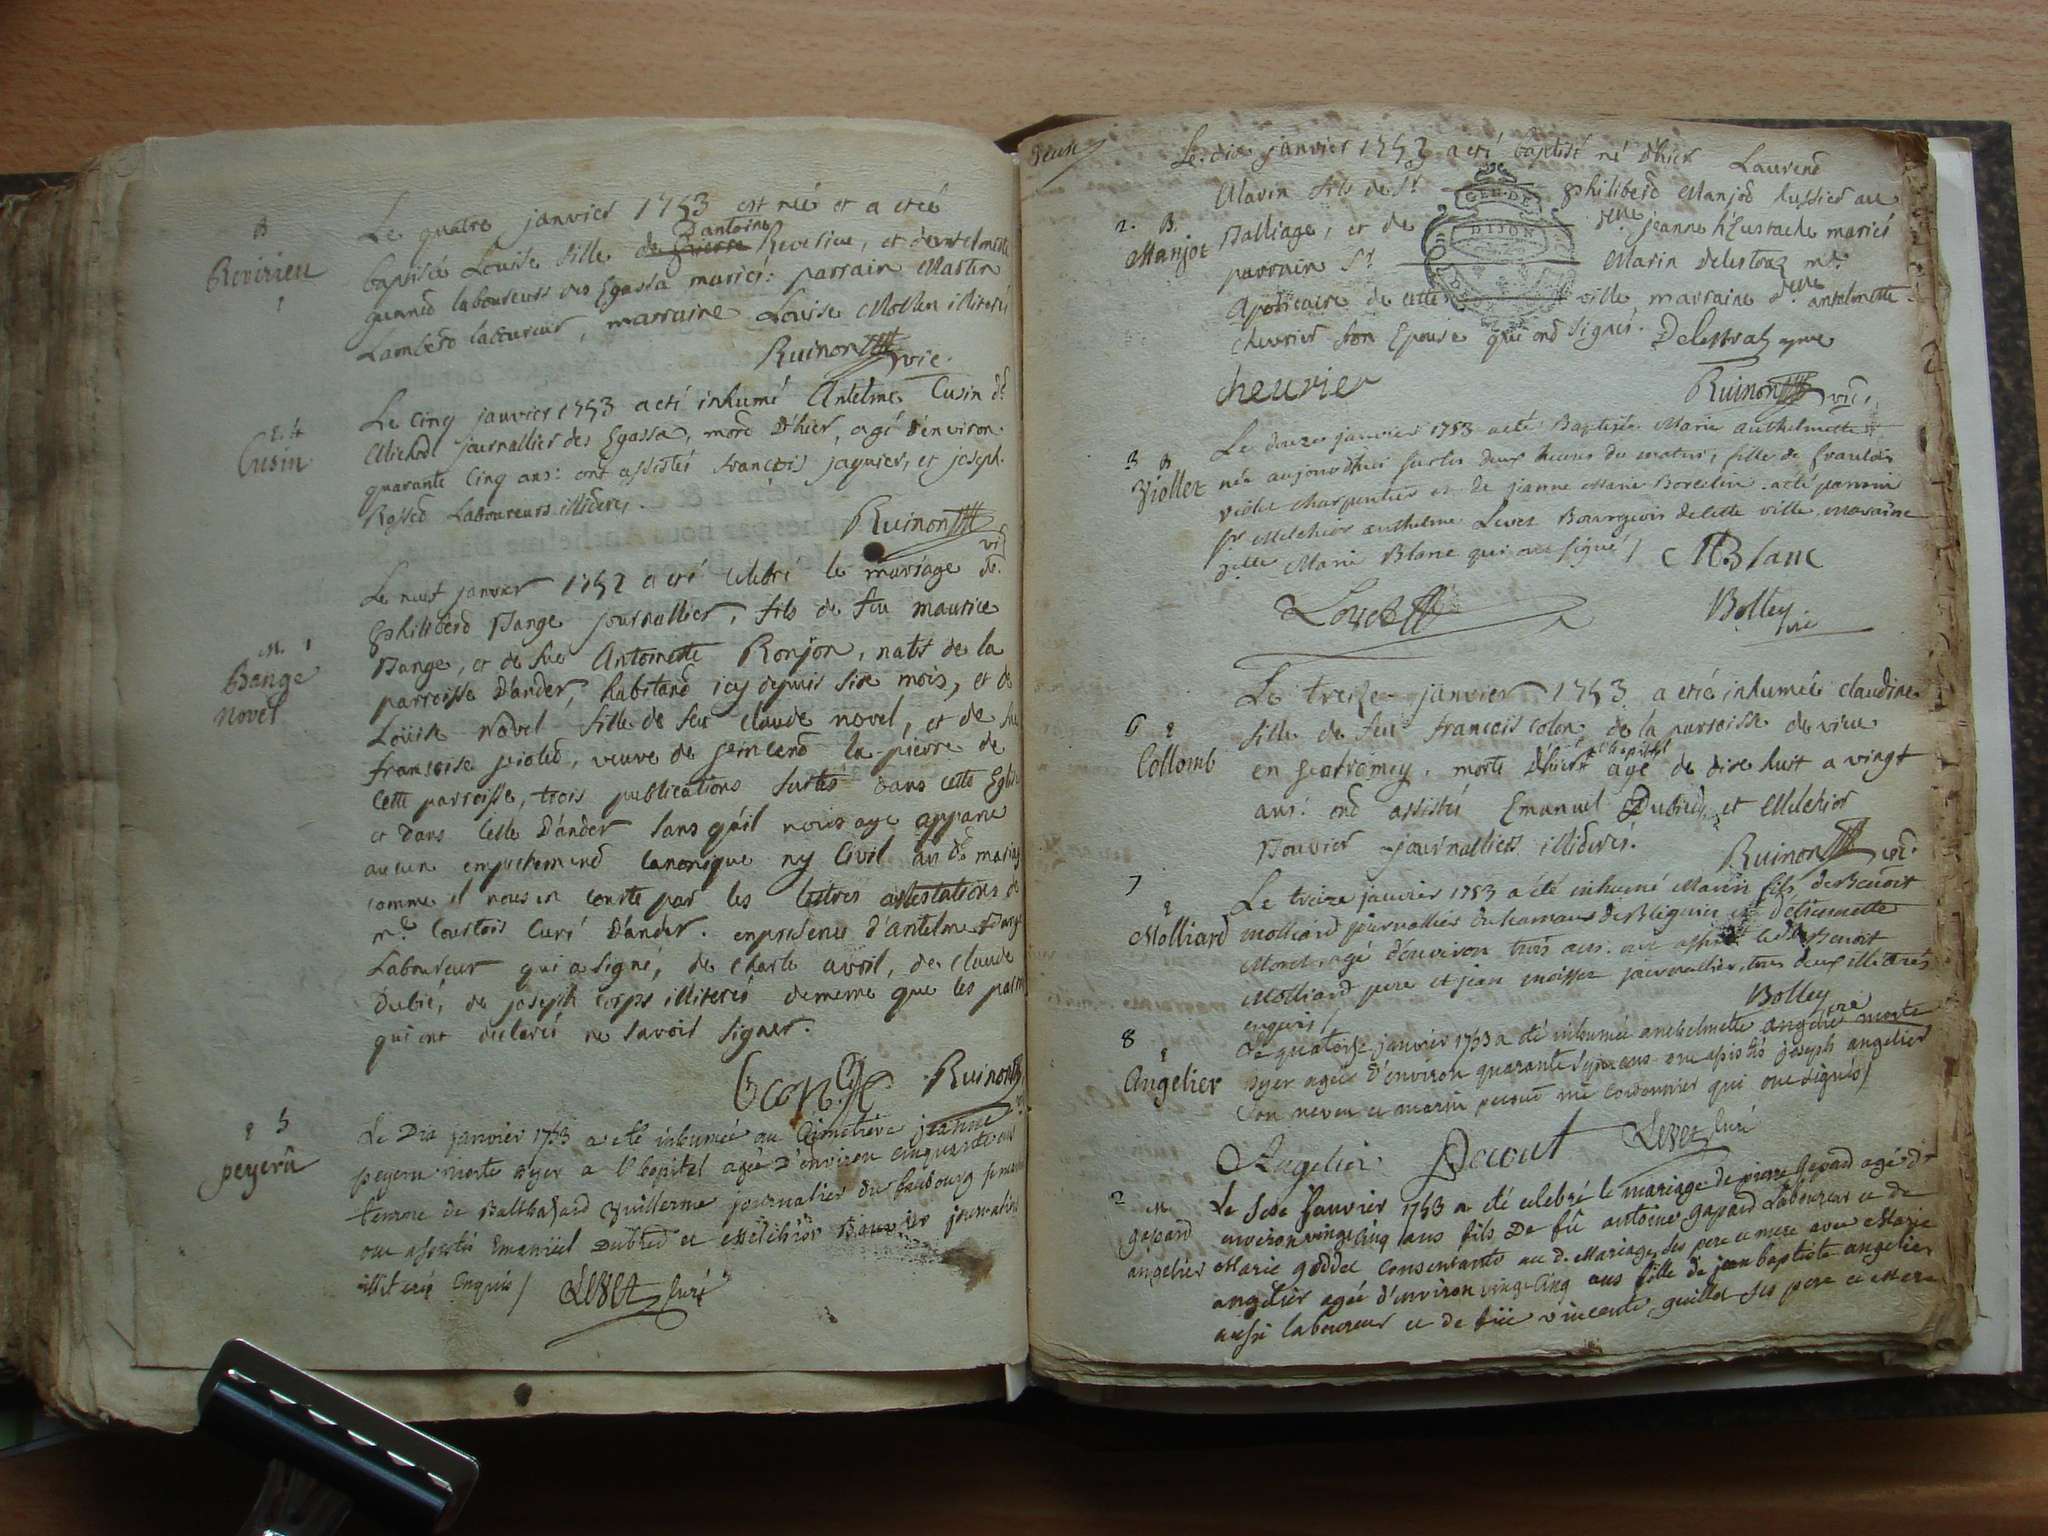 B
Revirieu
1
Le quatre janvier 1753 est née et a etée
baptisée Louise fille de pierre d'antoine Revirieu, et d'antelmette
quand laboureurs des Egassa mariés: parrain Martin
Lambert laboureur, marraine Louise illiterés
Ruinon vic.
Cusin
Le cinq janvier 1753 a eté inhumé Antelme Cusin dt
Michod journallier des Egassa, mort d'hier, agé d'environ
quarante cinq ans: ont assistés françois jaquier, et joseph
Rosset Laboureurs illiderés.
Ruinon
vic
M. 1
Bange
Novel
Le neuf janvier 1752 a eté celebré le mariage de
Philiberd Bange journallier, fils de feu maurice
Bange, et de fue Antoinette Ronjon, natif de la
parroisse D'ander, habitand icy depuis six mois, et de
Loüise Novel fille de feu claude novel, et de fue
françoise violed, veuve de la pierre de
cette parroisse, trois publications faites dans cette Eglise
et dans celle D'ander sans qu'il nous aye apparu
aucun empechemend canonique ny Civil au dt mariage
comme il nous en conste par les lettres attestations de
mr. Courtois Curé D'ander. en presence d'antelme Bange
Laboureur qui a signé, de charle avril, de claude
Dubié, de joseph corps illiterés de meme que les parties
qui ont declarés ne savoir signer.
Ruinon
5
peyeru
Le Dix janvier 1753 a eté inhumée au Cimetiere jeanne
peyeru morte hyer a l'hopital agée D'environ cinquante ans
femme de Balthasard Guillerme journalier du faubourg
ont assisté Emanüel Dubied et Melchior Bouvier journaliers
illiteré enquis /
Levet Curé
deux
2. B.
Manjot
Le dix janvier 1753 a eté baptisé né d'hier Laurend
Marin fils de Sr. Philiberd Manjod hussier au
Balliage, et de delle jeanne L'Eustache mariés
parrain Sr. Marin Delestraz md.
Apoticaire de cette ville marraine delle antelmette
chevrier son Epouse qui ond signés. Delestraz
cheurier
Ruinon vic.
3 B
Viollet
Le douze janvier 1753 a eté Baptisée Marie anthelmette
née aujourdhui sur les deux heures du matin, fille de françois
violet charpentier et de jeanne Marie Borcelin. a été parrain
Sr Melchior anthelme Levet Bourgeois de cette ville, maraine
delle Marie Blanc qui ont signé /
M Blanc
Levet
Bolley
vic
6
Collomb
Le treize janvier 1753 a etée inhumée claudine
fille de feu françois colon, de la parroisse de vieu
en Geatromey, morte d'hier a l'hopital agé de dix huit a vingt
ans: ond assistés Emanuel Dubied, et Melchior
Bouvier journalliers illiderés.
Ruinon vic.
7
Molliard
Le treize janvier 1753 a été inhumé Marin fils de Benoit
Molliard journallier du hamaux de Bliguier et d'etiennette
Moret agé d'environ trois ans. ont assisté le dt Benoit
Molliard pere et jean moisson journallier tous deux illiterés
enquis /
Bolley vic
8
Angelier
Le quatorze janvier 1753 a été inhumée anthelmette angelier morte
hyer agée d'environ quarante sept ans ont assistés joseph angelier
son neveu et marin pecout me cordonnier qui ont signés /
Angelier
Pecout
Levet Curé
2 M.
gapard
angelier
Le Seise Janvier 1753 a été celebré le mariage de pierre Gapard agé d'
environ vingt cinq ans fils De fû antoine gapard Laboureur et de
Marie goddet consentants au d. Mariage, ses pere et mere avec Marie
angelier agée d'environ vingt cinq ans fille de jean baptiste angelier
aussi laboureur et de füe vincente guillot ses pere et mere